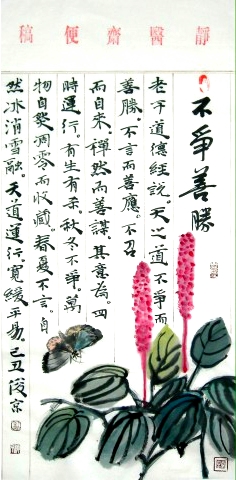 靜醫齋便稿
不爭善勝
老子道德經說。天之道不爭而
善勝。不言而善應。不召
而自来。繟然而善謀。其意為。四
時運行。有生有杀。秋冬不爭。萬
物自然凋零而收藏。春夏不言。自
然冰消雪融。天道運行。寬緩平易。己丑俊京